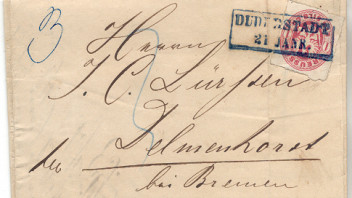 3
Herrn
J. C. Lürssen
Delmenhorst
bei Bremen
DUDERSTADT
21 JANR.